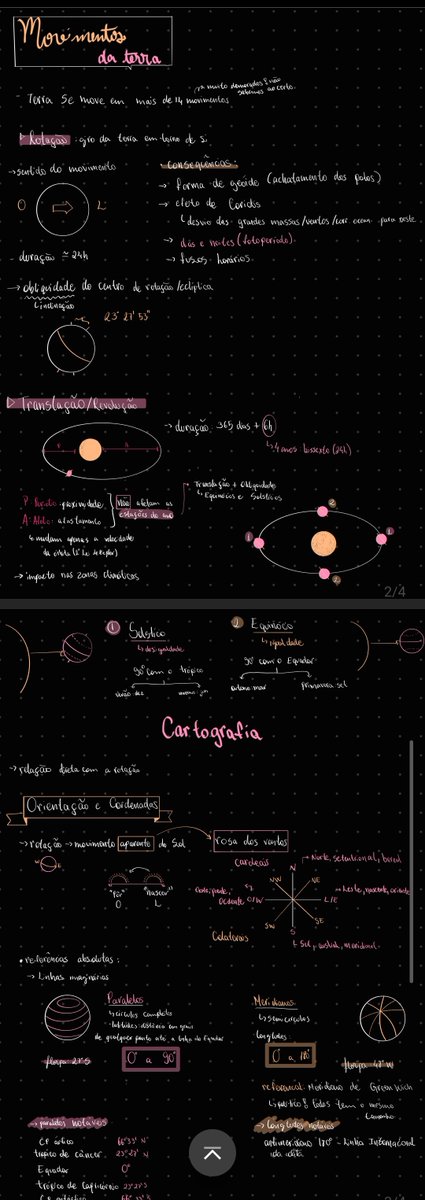 Movimentos
da terra
muito demorados e não
sabemos ao certo.
Terra se move em mais de 14 movimentos
Rotação: giro da terra em torno de si
→ sentido do movimento
consequências:
O L
→ forma de geóide (achatamento dos polos)
→ efeito de Coriolis
desvio das grandes massas/ventos/corr. ocean. para oeste
→ dias e noites (fotoperíodo).
duração ≃ 24h
→ fusos horários
→ obliquidade do centro de rotação/eclíptica
inclinação
23° 27' 53"
Translação/Revolução
→ duração: 365 dias + 6h
4 anos bissexto (24h)
P A
Translação + Obliquidade
Equinócios e Solstícios
P: proximidade
A: Afélio: afastamento
não afetam as
estações do ano
mudam apenas a velocidade
da órbita (2ª lei Kepler)
→ impacto nas zonas climáticas
1 2
1 2
2/4
1 Solstício
desigualdade
2 Equinócio
igualdade
90° com o trópico
90° com o Equador
verão dez
outono mar
primavera set
Cartografia
→ relação direta com a rotação
Orientação e Cordenadas
→ rotação → movimento aparente do Sol
rosa dos ventos
W E
cardeais
Norte, setentrional, boreal
N
NW NE
"Pôr" "nascer"
O L
Ocidente O/W
L/E
Leste, nascente, oriente
SW SE
S
Colaterais
Sul, austral, meridional.
• referências absolutas:
→ linhas imaginárias
Paralelos
→ círculos completos
latitudes: distância em graus
de qualquer ponto até a linha do Equador
0° a 90°
Meridianos
→ semicírculos
longitudes
0° a 180°
referencial: Meridiano de Greenwich
político! todos tem o mesmo
tamanho.
→ paralelos notáveis
→ longitudes notáveis
CP ártico 66°33' N
trópico de câncer 23°27' N
antimeridiano 180° - Linha Internacional
da data
Equador 0°
trópico de capricórnio 23°27'S
CP antártico 66°33' S